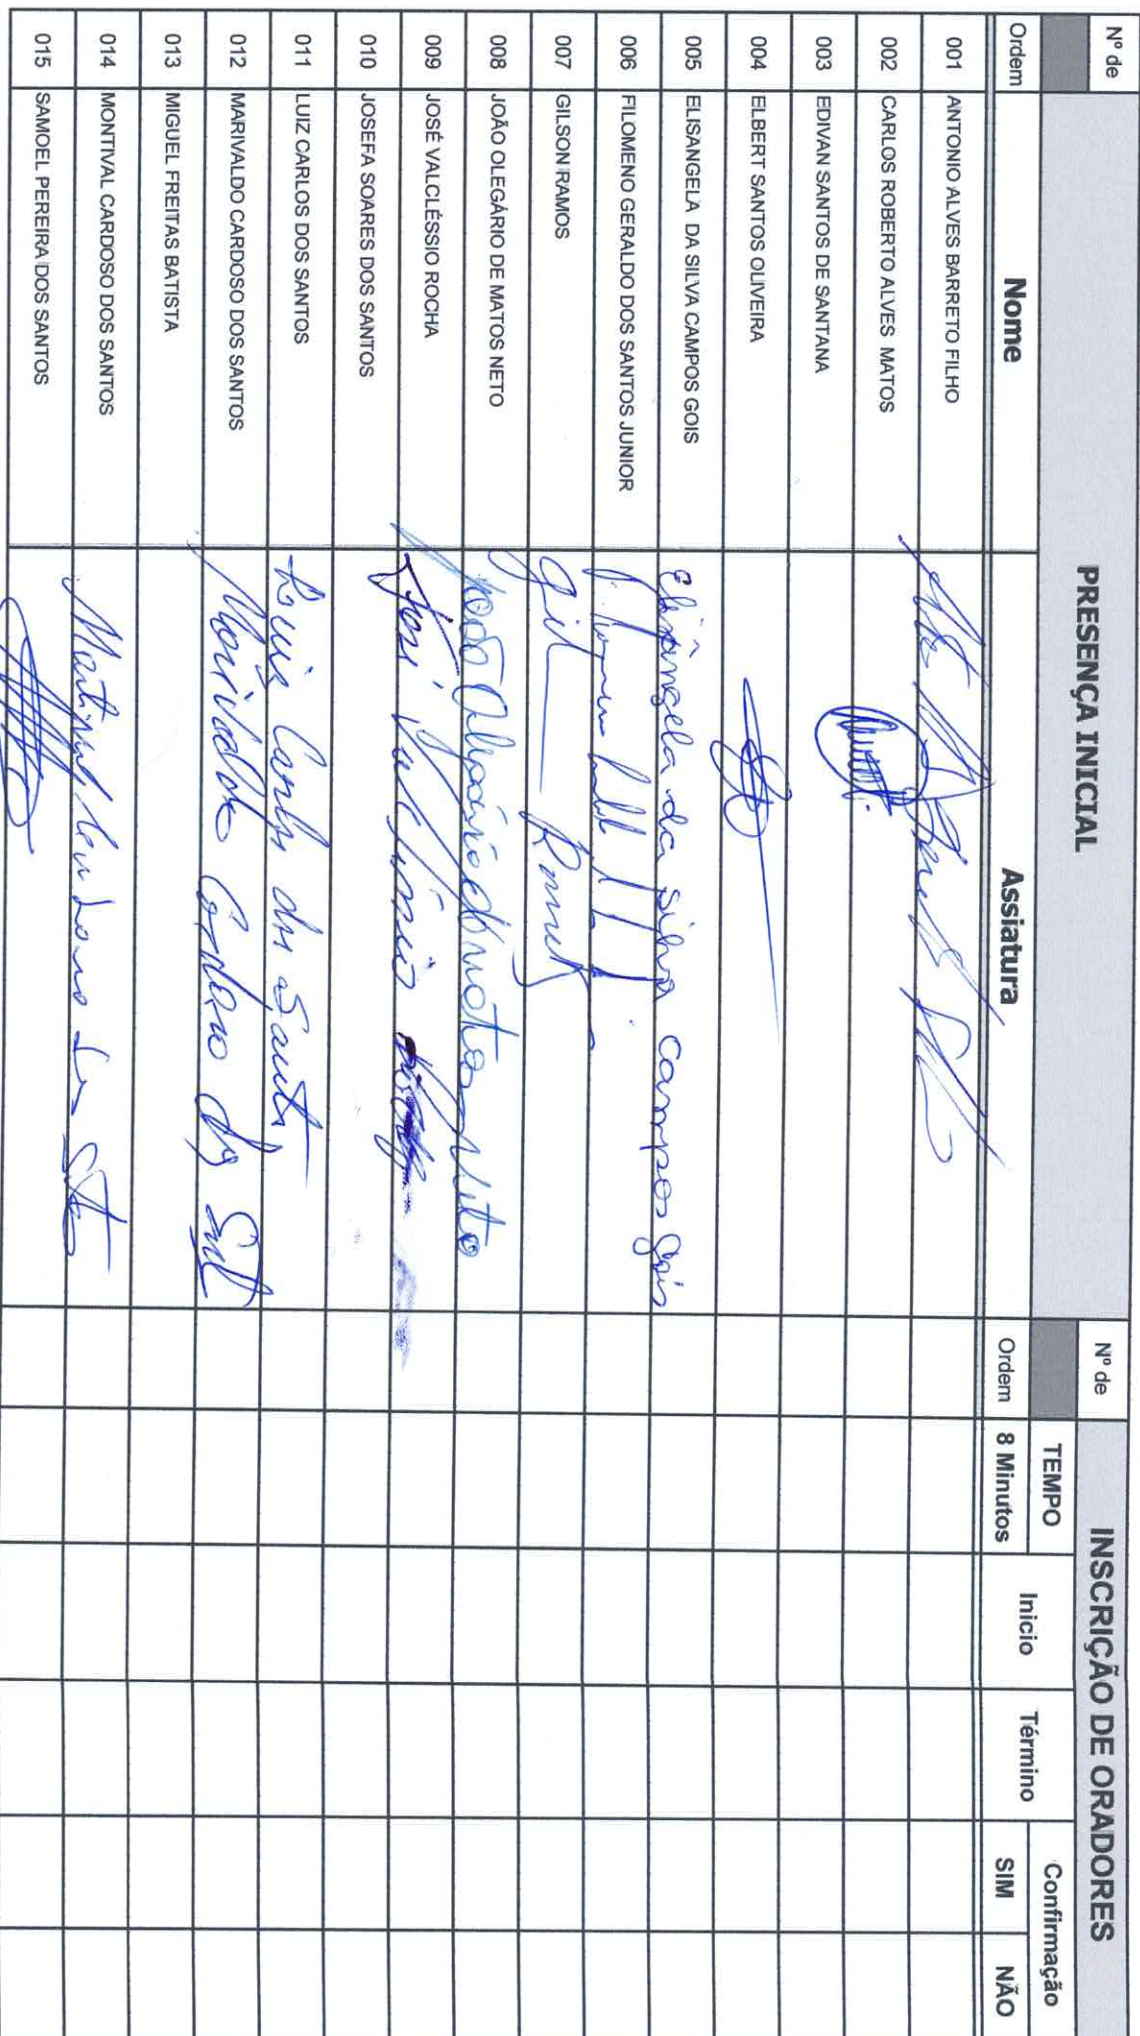 Nº de
PRESENÇA INICIAL
Nº de
INSCRIÇÃO DE ORADORES
TEMPO
Confirmação
Ordem
Nome
Assiatura
Ordem
8 Minutos
Inicio
Término
SIM
NÃO
001 ANTONIO ALVES BARRETO FILHO
002 CARLOS ROBERTO ALVES MATOS
003 EDIVAN SANTOS DE SANTANA
004 ELBERT SANTOS OLIVEIRA
005 ELISANGELA DA SILVA CAMPOS GOIS Elisângela da silva campos Gois
006 FILOMENO GERALDO DOS SANTOS JUNIOR
007 GILSON RAMOS
008 JOÃO OLEGÁRIO DE MATOS NETO João Olegário de Matos Neto
009 JOSÉ VALCLÉSSIO ROCHA José Valcléssio
010 JOSEFA SOARES DOS SANTOS
011 LUIZ CARLOS DOS SANTOS Luiz Carlos dos Santos
012 MARIVALDO CARDOSO DOS SANTOS Marivaldo Cardoso dos
013 MIGUEL FREITAS BATISTA
014 MONTIVAL CARDOSO DOS SANTOS
015 SAMOEL PEREIRA DOS SANTOS